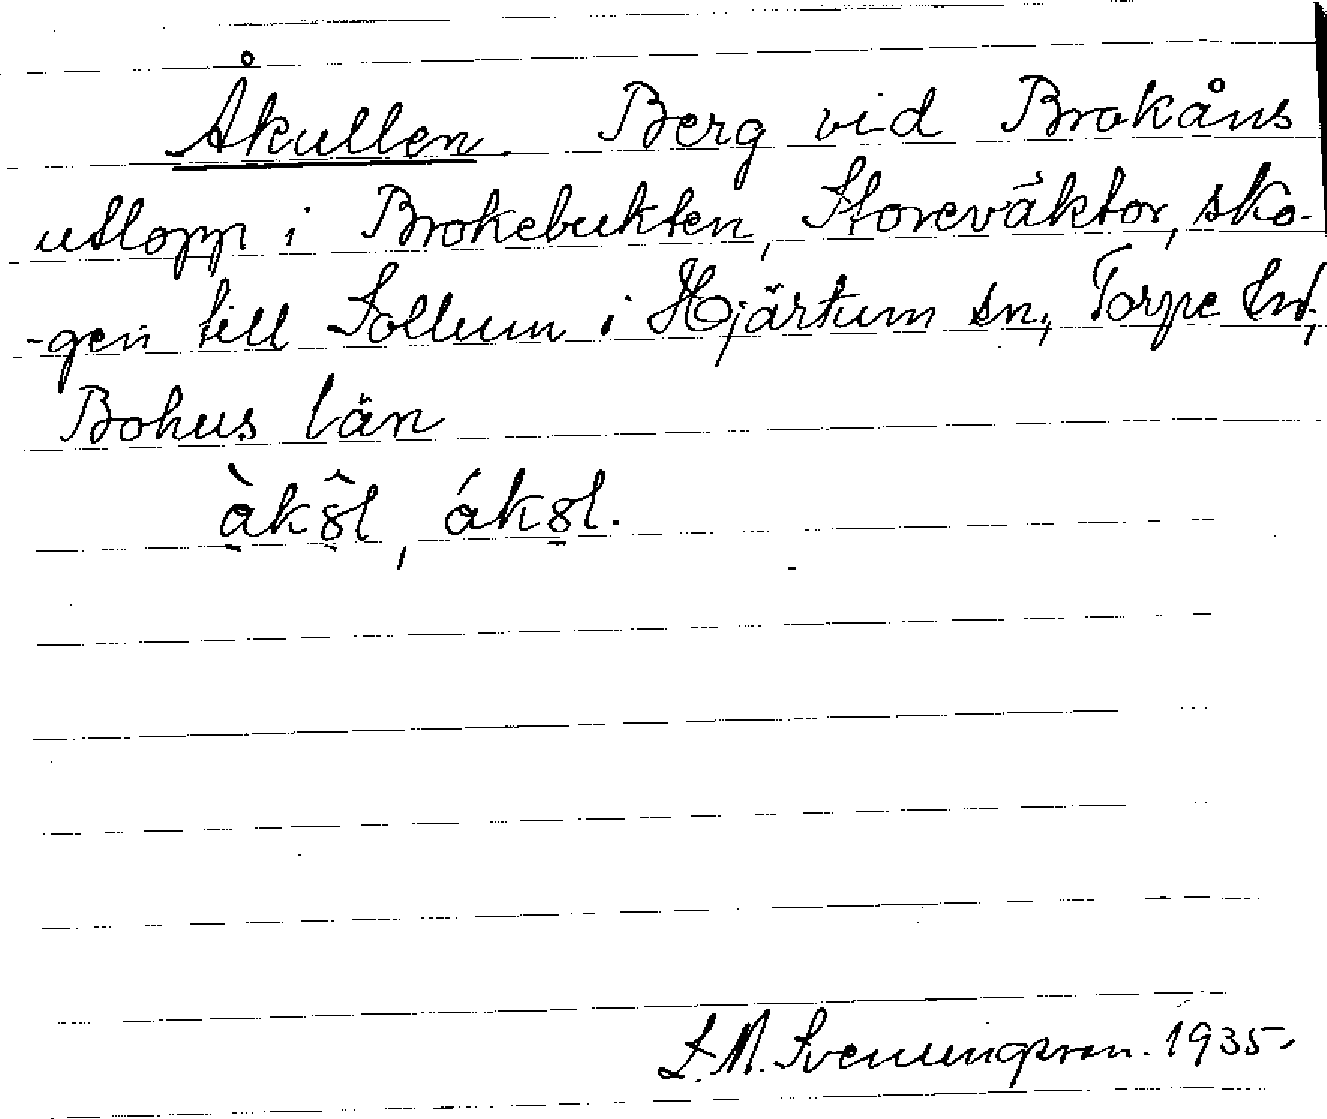 Åkullen Berg vid Brokåns
utlopp i Brokebukten, Storeväktor, sko-
-gen till Sollum i Hjärtum sn, Torpe hd,
Bohus län
S.M. Svenungsson. 1935.